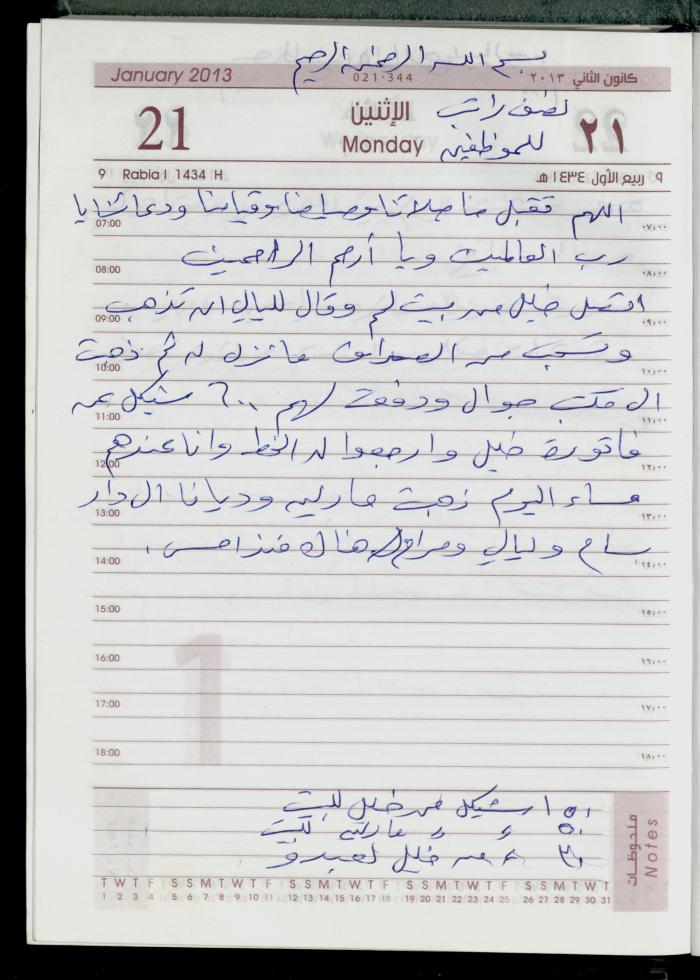 بسم الله الرحمن الرحيم
January 2013
021-344
كانون الثاني ٢٠١٣
21
الإثنين
Monday
نصف راتب
للموظفين
٢١
9 Rabia I 1434 H
٩ ربيع الأول ١٤٣٤ هـ
اللهم تقبل منا صلاتنا وصيامنا وقيامنا ودعائنا يا
07:00 ٠٧,٠٠
رب العالمين ويا أرحم الراحمين
08:00 ٠٨,٠٠
اتصل خليل من بيت لحم وقال لليالي ان تذهب
09:00 ٠٩,٠٠
وتسحب من الصراف ما نزل له ثم ذهبت
10:00 ١٠,٠٠
الى مكتب جوال ودفعت لهم ٦٠٠ شيكل عن
11:00 ١١,٠٠
فاتورة خليل وارجعوا له الخط وانا عندهم
12:00 ١٢,٠٠
مساء اليوم ذهبت مارلين وديانا الى دار
13:00 ١٣,٠٠
بسام وليالي ومرام هناك منذ امس .
14:00 ١٤,٠٠
15:00 ١٥,٠٠
16:00 ١٦,٠٠
17:00 ١٧,٠٠
18:00 ١٨,٠٠
1
ملحوظات
Notes
١٥٠ شيكل من خليل للبيت
٥٠ ء ء مارلين للبيت
٣٠ ء من خليل لعبدو
T W T F S S M T W T F S S M T W T F S S M T W T F S S M T W T
1 2 3 4 5 6 7 8 9 10 11 12 13 14 15 16 17 18 19 20 21 22 23 24 25 26 27 28 29 30 31